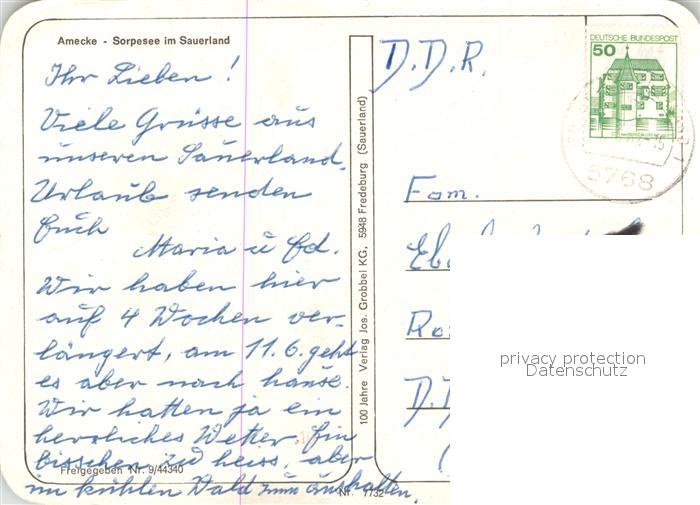 Amecke - Sorpesee im Sauerland
Ihr Lieben!
Viele Grüsse aus
unseren Sauerland,
Urlaub senden
Euch
Maria u Ed.
Wir haben hier
auf 4 Wochen ver-
längert, am 11.6. geht
es aber nach hause.
Wir hatten ja ein
herrliches Wetter. Ein
bisschen zu heiss, aber
im kühlen Wald zum aushalten.
Freigegeben Nr. 9/44340
Nr. 7732
100 Jahre Verlag Jos. Grobbel KG, 5948 Fredeburg (Sauerland)
D.D.R.
DEUTSCHE BUNDESPOST
50
5768
Fam.
privacy protection
Datenschutz